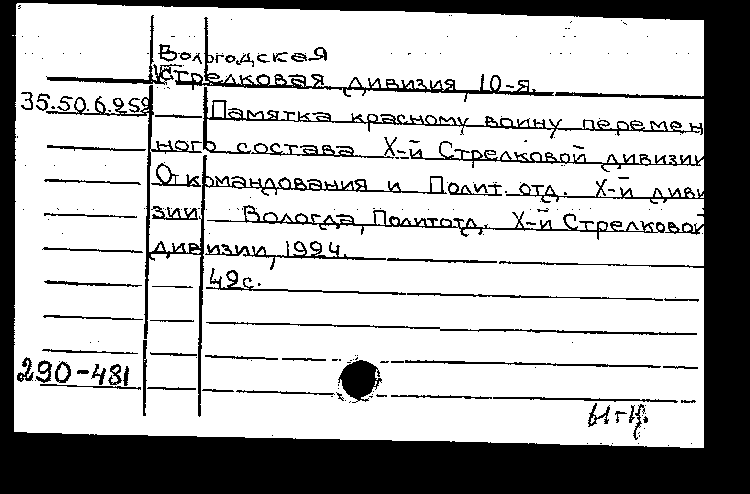 Вологодская
Стрелковая дивизия, 10-я.
35.50.6.252 Памятка красному воину перемен
ного состава X-й Стрелковой дивизии
От командования и Полит. отд. X-й диви
зии Вологда, Политотд. X-й Стрелковой
дивизии, 1924.
42с.
290-481